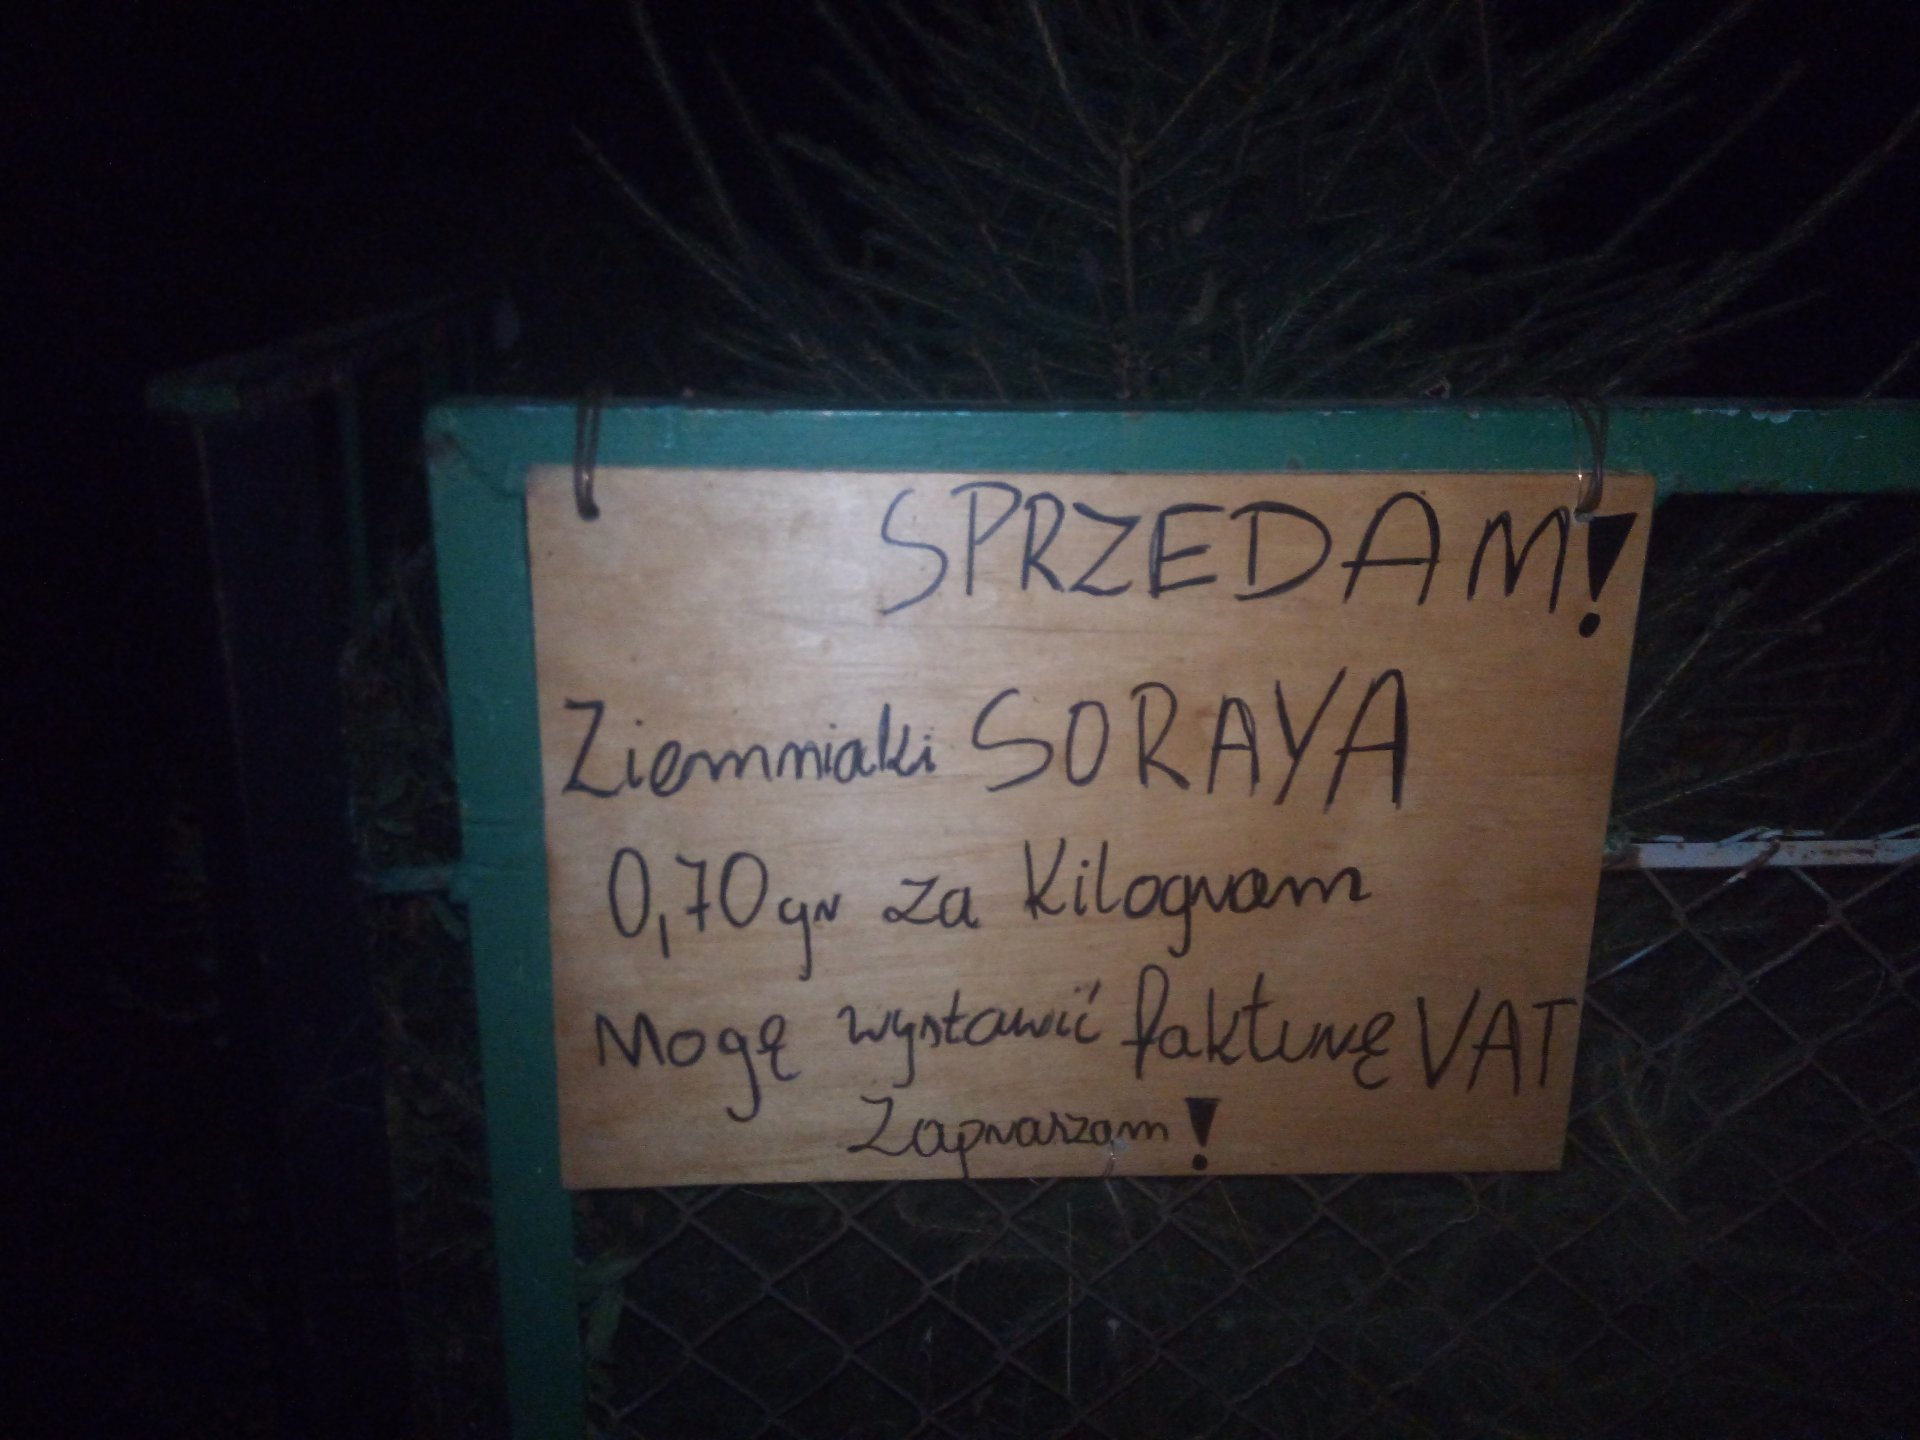 SPRZEDAM!
Ziemniaki SORAYA
0,70gr za Kilogram
Mogę wystawić fakturę VAT
Zapraszam!